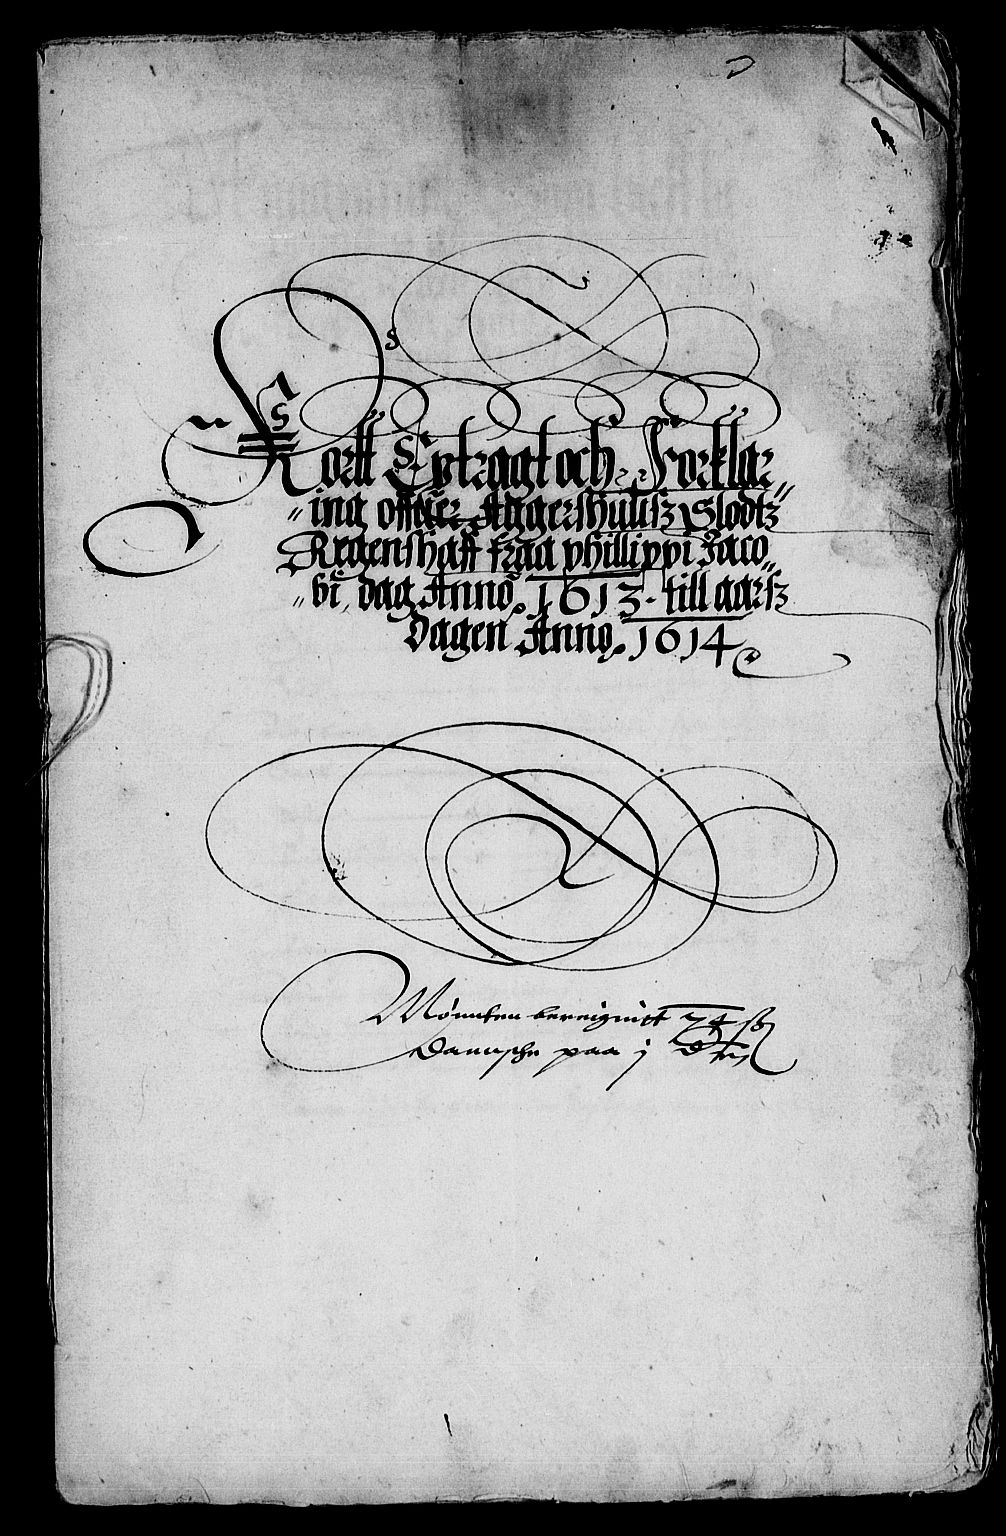 Kortt Extragt och Forklar
ing offuer Aggershuusz Slodtz
Regenshaff fraa phillippi Jaco
bi dag Anno 1613 till aarsz
Dagen Anno 1614
Mønnten bereignitt 74 ß
Danusche paa j Dlr